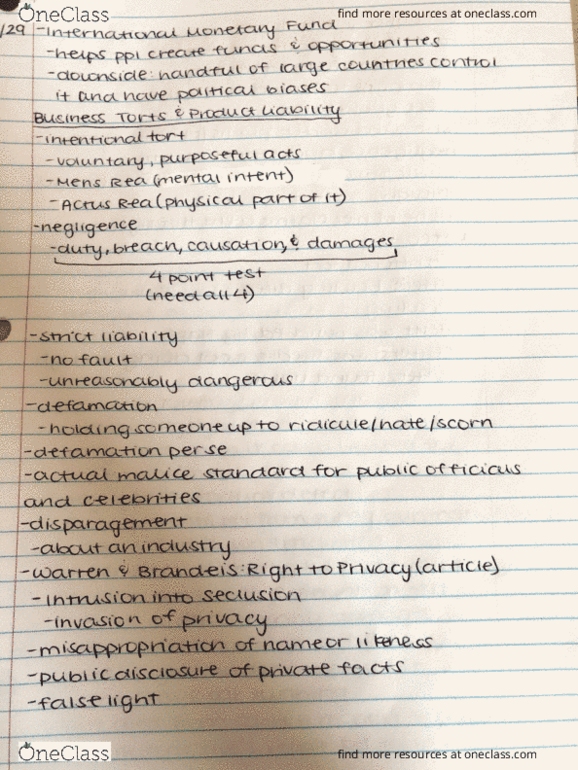 OneClass
find more resources at oneclass.com
/29 -International Monetary Fund
-helps ppl create funds & opportunities
-downside: handful of large countries control
it and have political biases
Business Torts & Product Liability
-intentional tort
-voluntary, purposeful acts
-Mens Rea (mental intent)
-Actus Rea (physical part of it)
-negligence
-duty, breach, causation, & damages
4 point test
(need all 4)
-strict liability
-no fault
-unreasonably dangerous
-defamation
-holding someone up to ridicule/hate/scorn
-defamation per se
-actual malice standard for public officials
and celebrities
-disparagement
-about an industry
-Warren & Brandeis: Right to Privacy (article)
-intrusion into seclusion
-invasion of privacy
-misappropriation of name or likeness
-public disclosure of private facts
-false light
OneClass
find more resources at oneclass.com